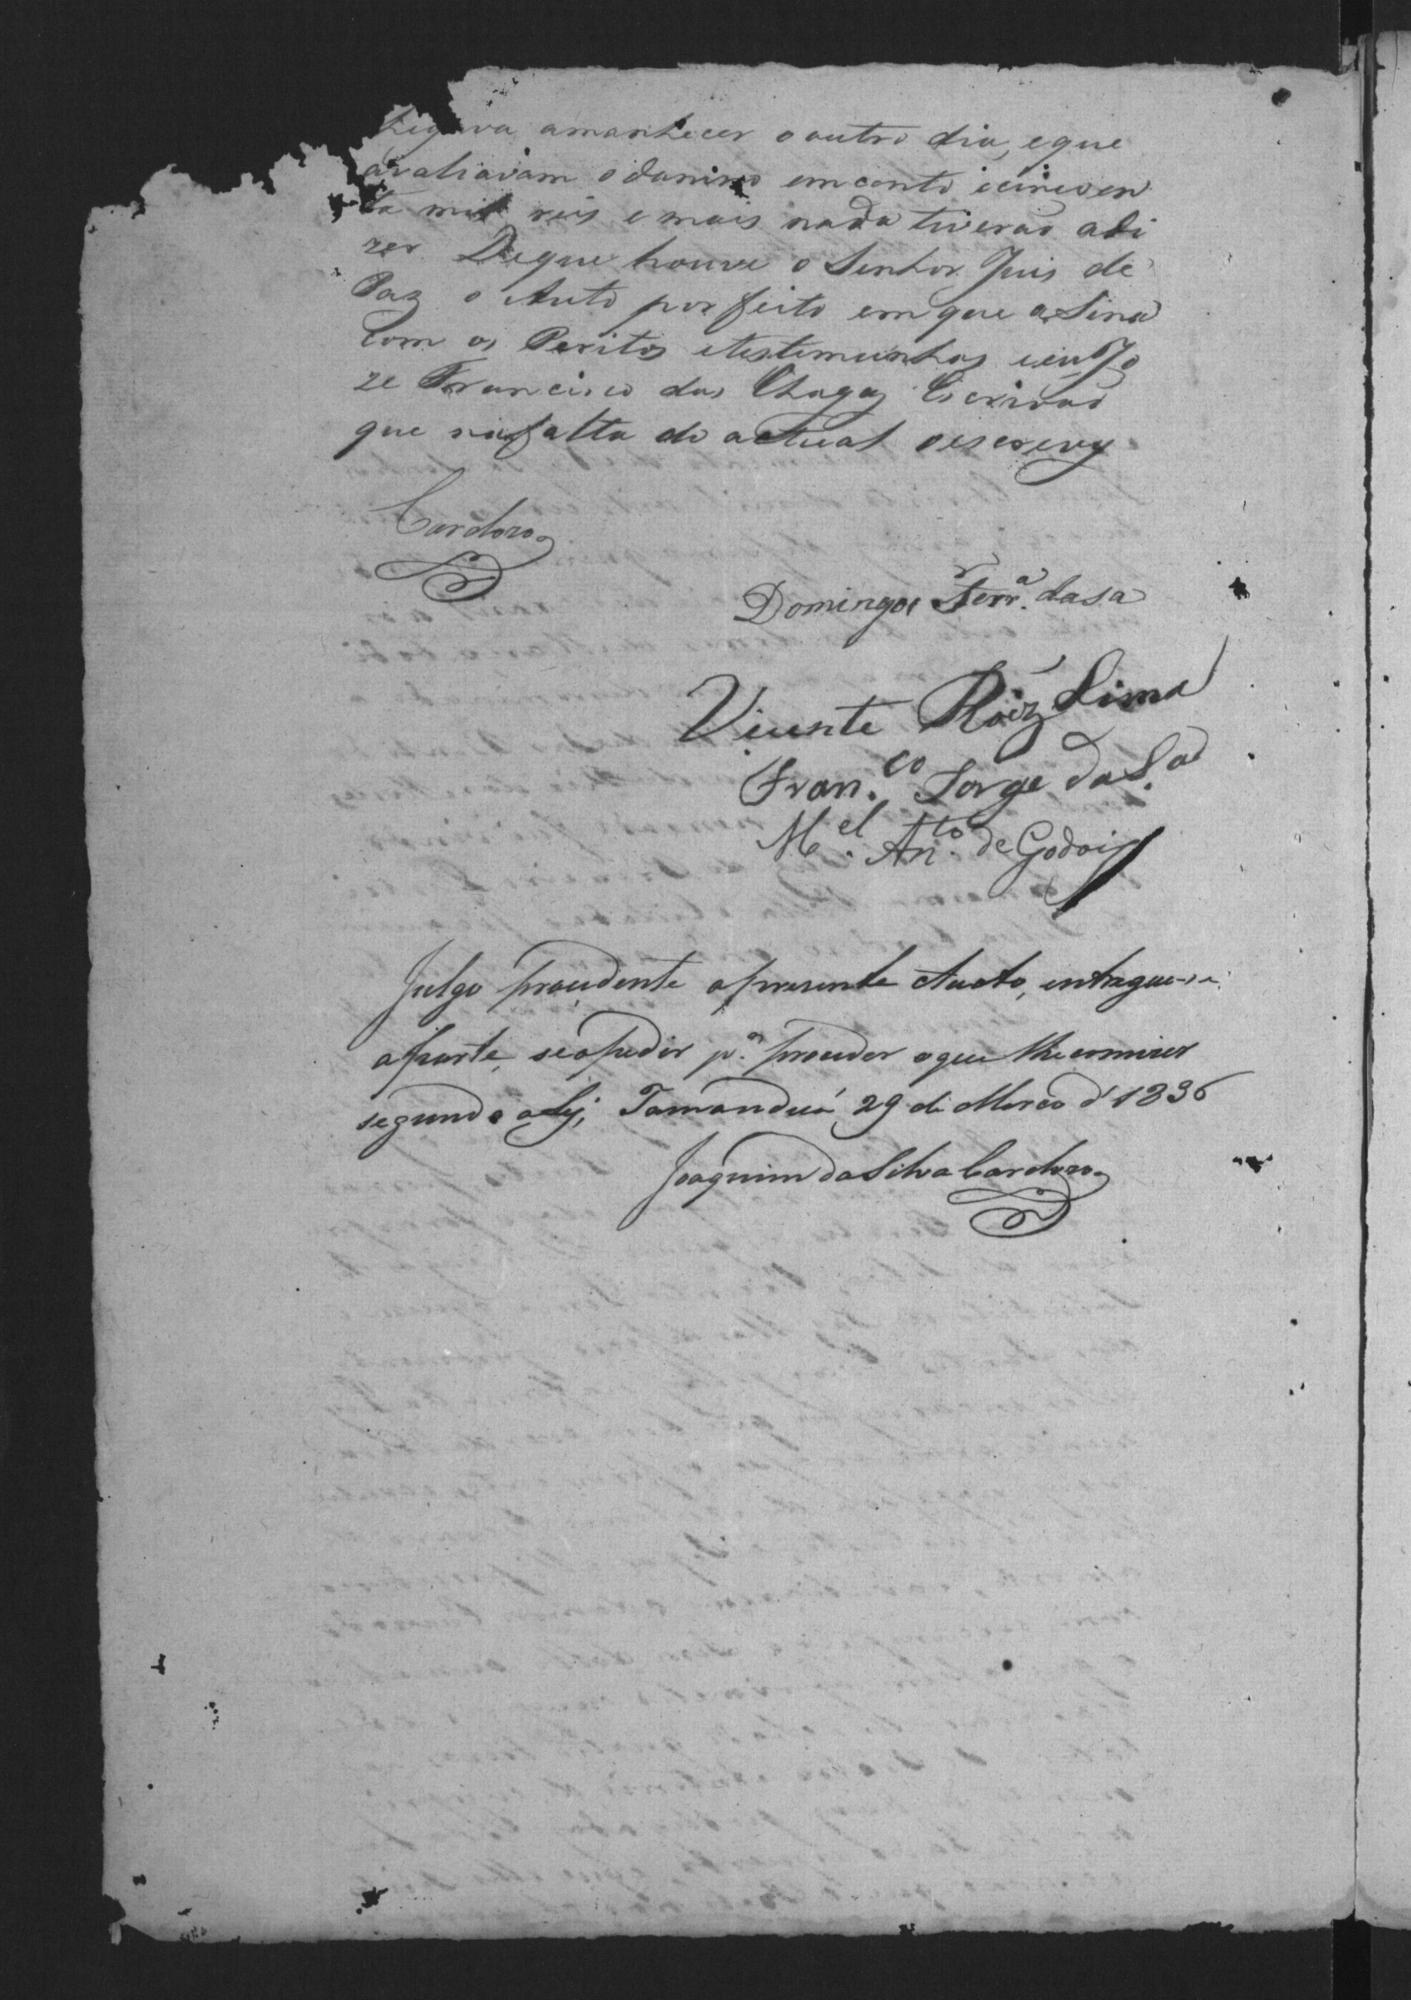 chegava amanhecer o outro dia, eque
avaliavam odanino emcento ecincoen
ta mil reis e mais nada tiverão adi
zer Deque houve o Senhor Juis de
Paz o Auto porfeito emque aSina
com os Peritos etestemunhas eeuJo
ze Francisco das Chagas Escrivão
que nafalta do actual oescrevy
Cardozo
Domingos Ferr.ª dasa
Vicente Roiz Lima
Fran.co Jorge daS.a
M.el An.to de Godoi
Julgo procedente apresente Aucto, entregue-se
aparte, seopedir p.ª proceder oque lhe comvier
segundo aLey, Tamanduá 29 de Março d'1836
Joaquim daSilva Cardozo